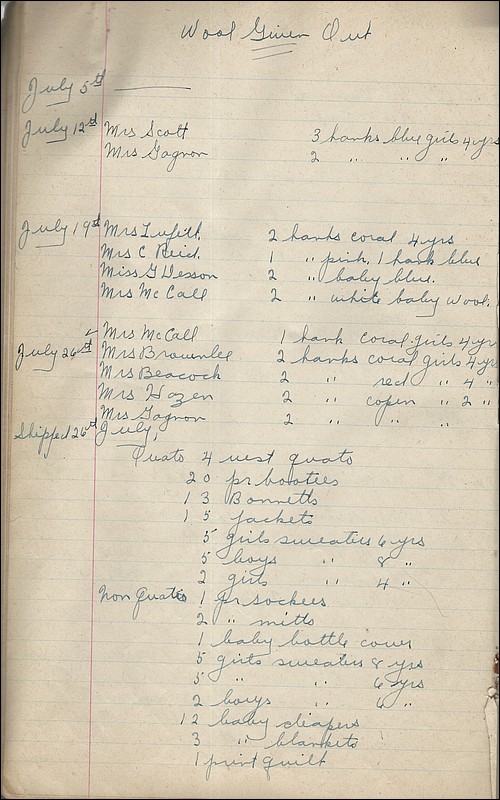 Wool Given Out
July 5th
July 12th Mrs Scott 3 hanks blue girls 4 yrs
Mrs Gagnon 2 " " "
July 19th Mrs 2 hanks coral 4 yrs
Mrs C Reid. 1 " pink. 1 hank blue
Miss G Wesson 2 " baby blue.
Mrs McCall 2 " white baby wool.
Mrs McCall 1 hank coral girls 4 yr
July 26th Mrs Brownlee 2 hanks coral girls 4 yr
Mrs Beacock 2 " red " 4 "
Mrs Hazen 2 " copen " 2 "
Mrs Gagnon 2 " " "
Shipped 26th July,
Quato 4 vest quato
20 pr bootees
13 Bonnetts
15 jackets
5 girls sweaters 6 yrs
5 boys " 8 "
2 girls " 4 "
Non Quato 1 pr sockees
2 " mitts
1 baby bottle cover
5 girls sweaters 8 yrs
5 " " 6 yrs
2 boys " 6 "
12 baby diapers
3 " blankets
1 print quilt